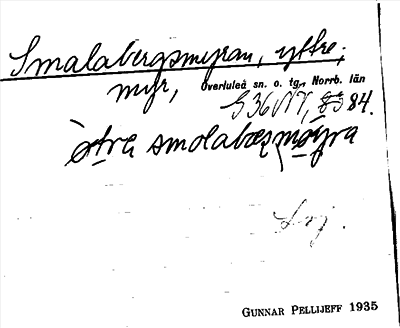 Smalabergsmyran, yttre;
myr, Överluleå sn. o. tg., Norrb. län
G36VV, 83 84.
ø̀tra smolabæṣmø̀yra
GUNNAR PELLIJEFF 1935